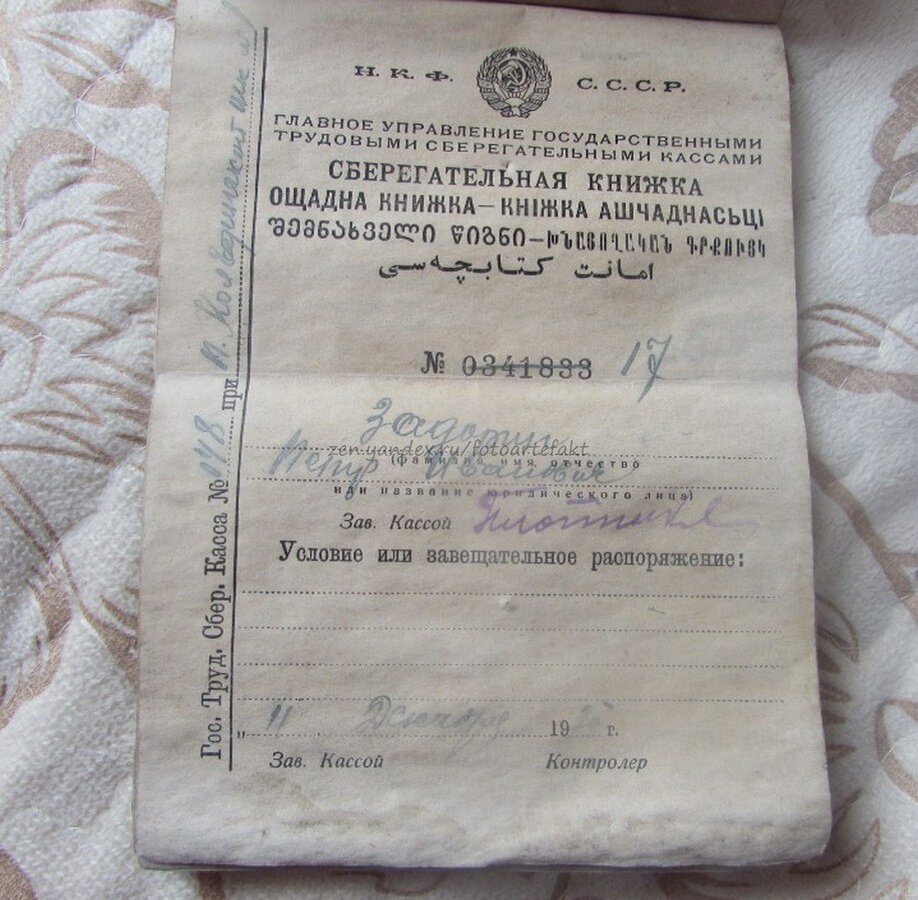 Н. К. Ф. С. С. С. Р.
ГЛАВНОЕ УПРАВЛЕНИЕ ГОСУДАРСТВЕННЫМИ
ТРУДОВЫМИ СБЕРЕГАТЕЛЬНЫМИ КАССАМИ
СБЕРЕГАТЕЛЬНАЯ КНИЖКА
ОЩАДНА КНИЖКА—КНІЖКА АШЧАДНАСЬЦІ
ᲨᲔᲛᲜᲐᲮᲕᲔᲚᲘ ᲬᲘᲒᲜᲘ—ԽՆԱՅՈՂԱԿԱՆ ԳՐՔՈՒՅԿ
امانت كتابچه‌سی
№ 0341833 17
zen.yandex.ru/fotoartefakt
Петр Иванович
(фамилия, имя отчество
или название юридического лица)
Зав. Кассой
Условие или завещательное распоряжение:
„ 11 Декабря 19 г.
Зав. Кассой Контролер
Гос. Труд. Сбер. Касса № при